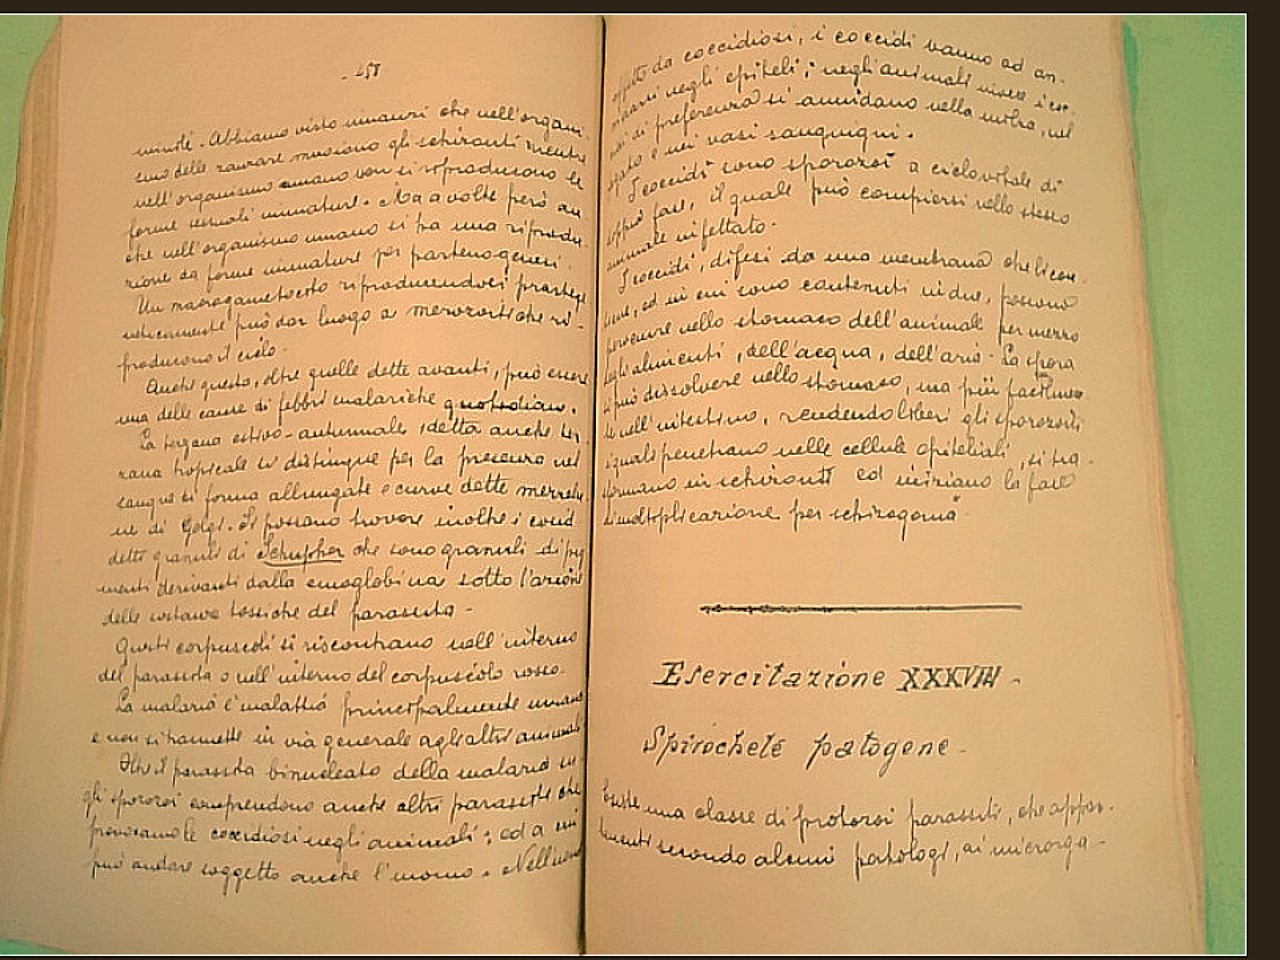 - 258
Abbiamo visto innanzi che nell'organi-
smo delle zanzare muoiono gli schizonti mentre
nell'organismo umano non si riproducono le
forme sessuali immature. Ma a volte però an-
che nell'organismo umano si ha una riprodu-
zione da forme immature per partenogenesi.
Un macrogametocito riproducendosi
può dar luogo a merozoiti che ri-
producono il ciclo.
Anche questo, oltre quelle dette avanti, può essere
una delle cause di febbri malariche quotidiane.
La terzana estivo-autunnale, detta anche ter-
zana tropicale si distingue per la presenza nel
sangue di forme allungate e curve dette
di Golgi. Si possono trovare inoltre i così
detti granuli di Schüffner che sono granuli di pig
menti derivanti dalla emoglobina sotto l'azione
delle sostanze tossiche del parassita -
Questi corpuscoli si riscontrano nell'interno
del parassita o nell'interno del corpuscolo rosso.
La malaria è malattia principalmente umana
e non si trasmette in via generale agli altri animali
Oltre il parassita binucleato della malaria
gli sporozoi comprendono anche altri parassiti che
provocano le coccidiosi negli animali; ed a cui
può andare soggetto anche l'uomo. Nell'uomo
affetto da coccidiosi, i coccidi vanno ad an-
nidarsi negli epiteli; negli animali invece i coc-
di preferenza si annidano nella milza, nel
fegato e nei vasi sanguigni.
I coccidi sono sporozoi a ciclo vitale di
doppia fase, il quale può compiersi nello stesso
animale infettato.
I coccidi, difesi da una membrana che li con-
tiene, ed in cui sono contenuti in due, possono
pervenire nello stomaco dell'animale per mezzo
degli alimenti, dell'acqua, dell'aria - La spora
si può dissolvere nello stomaco, ma più facilmen
te nell'intestino, rendendo liberi gli sporozoiti
i quali penetrano nelle cellule epiteliali, si tra-
sformano in schizonti ed iniziano la fase
di moltiplicazione per schizogonia
Esercitazione XXXVIII -
Spirochete patogene -
Esiste una classe di protozoi parassiti, che appar-
tenenti secondo alcuni patologi, ai microrga-